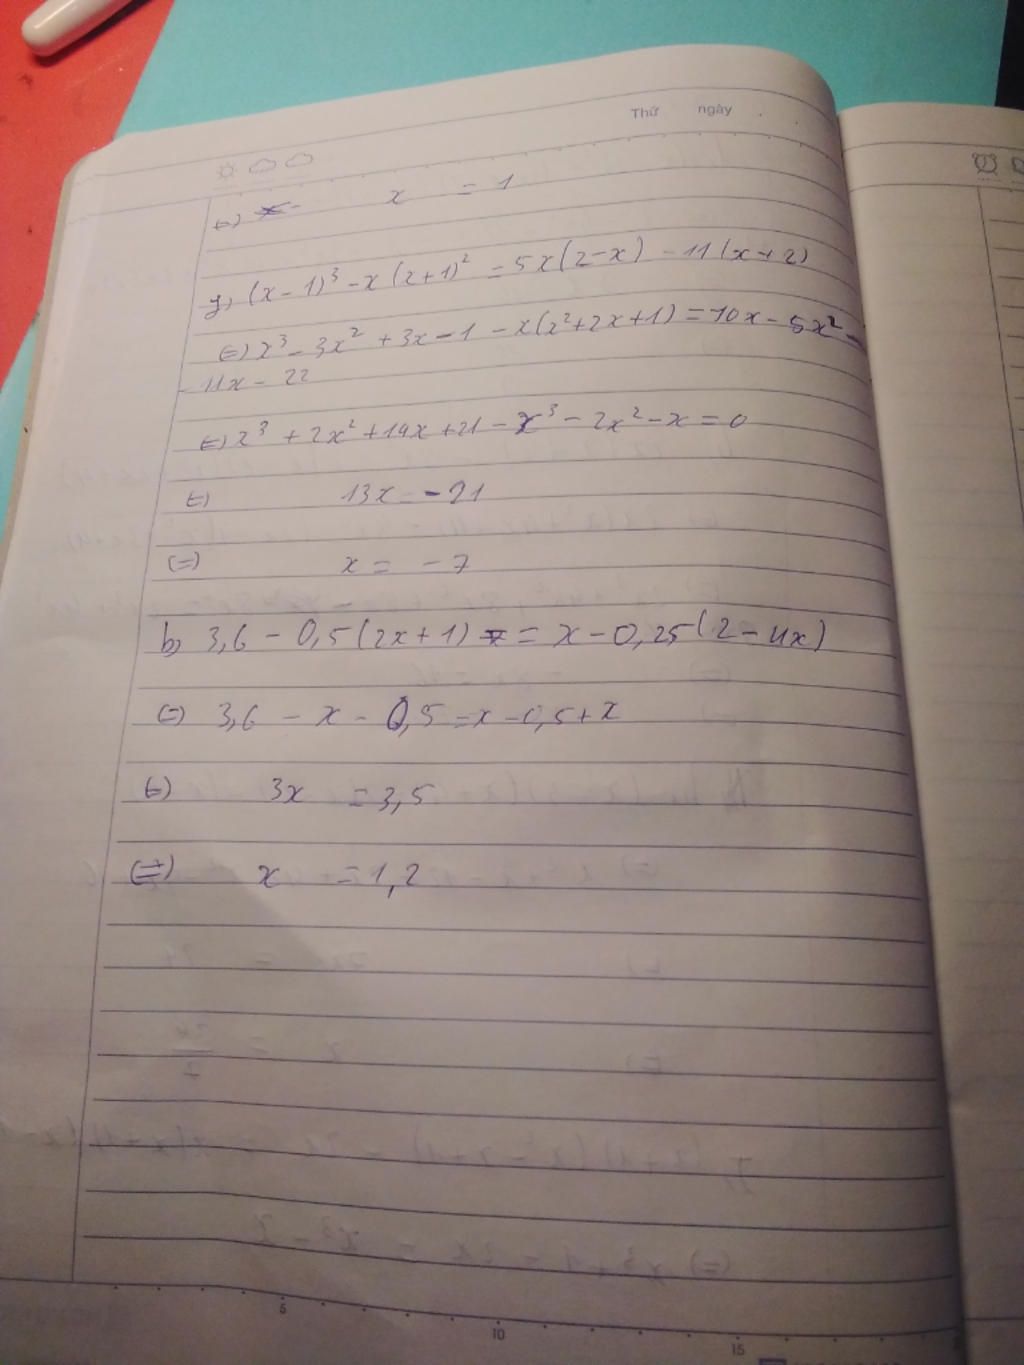 Thứ ngày
(=) x = 1
y, (x-1)³ - x(x+1)² = 5x(2-x) - 11(x+2)
(=) x³ - 3x² + 3x - 1 - x(x²+2x+1) = 10x - 5x² -
11x - 22
(=) x³ + 2x² + 14x + 21 - x³ - 2x² - x = 0
(=) 13x = -21
(=) x = -7
b, 3,6 - 0,5(2x+1) = x - 0,25(2-4x)
(=) 3,6 - x - 0,5 = x - 0,5 + x
(=) 3x = 3,5
(=) x = 1,2
5
10
15